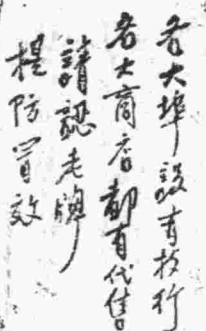 各大埠設有技行
各大商店都有代售
請認老牌
提防冒效